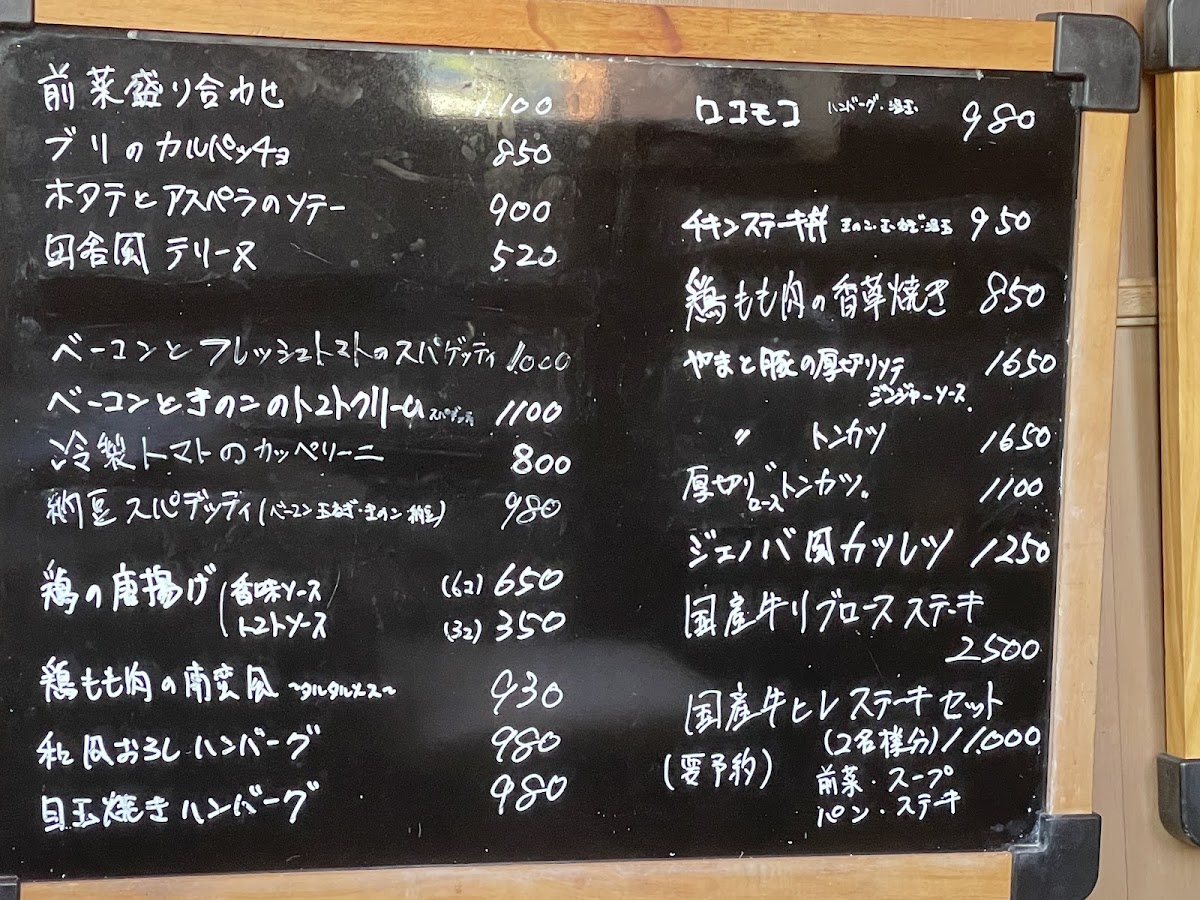 前菜盛り合わせ 1100
ブリのカルパッチョ 850
ホタテとアスペラのソテー 900
田舎風テリーヌ 520
ベーコンとフレッシュトマトのスパゲッティ 1000
ベーコンときのこのトマトクリームスパゲッティ 1100
冷製トマトのカッペリーニ 800
納豆スパゲッティ(ベーコン 玉ねぎ・きのこ 納豆) 980
鶏の唐揚げ(香味ソース (6コ) 650
トマトソース (3コ) 350
鶏もも肉の南蛮風 ~タルタルソース~ 930
和風おろしハンバーグ 980
目玉焼きハンバーグ 980
ロコモコ ハンバーグ・温玉 980
チキンステーキ丼 きのこ・玉ねぎ・温玉 950
鶏もも肉の香草焼き 850
やまと豚の厚切りソテー 1650
ジンジャーソース
〃 トンカツ 1650
厚切りトンカツ 1100
ロース
ジェノバ風カツレツ 1250
国産牛リブロースステーキ
2500
国産牛ヒレステーキセット
(2名様分) 11000
(要予約) 前菜・スープ
パン・ステーキ